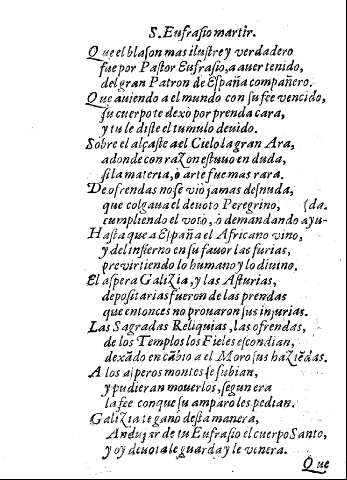 S. Eufrasio martir.
Que el blason mas ilustre y verdadero
fue por Pastor Eufrasio, a auer tenido,
del gran Patron de España compañero.
Que auiendo a el mundo con su fee vencido,
su cuerpo te dexò por prenda cara,
y tu le diste el tumulo deuido.
Sobre el alçaste a el Cielo la gran Ara,
adonde con razon estuuo en duda,
si la materia, ò arte fue mas rara.
De ofrendas no se viò jamas desnuda,
que colgaua el deuoto Peregrino, (da.
cumpliendo el voto, ò demandando ayu-
Hasta que a España el Africano vino,
y del infierno en su fauor las furias,
previrtiendo lo humano y lo diuino.
El aspera Galizia, y las Asturias,
depositarias fueron de las prendas
que entonces no prouaron sus injurias.
Las Sagradas Reliquias, las ofrendas,
de los Templos los Fieles escondian,
dexãdo en cãbio a el Moro sus haziẽdas.
A los asperos montes se subian,
y pudieran mouerlos, segun era
la fee con que su amparo les pedian.
Galizia te ganò desta manera,
Anduxar de tu Eufrasio el cuerpo Santo,
y oy deuota le guarda y le venera.
Que